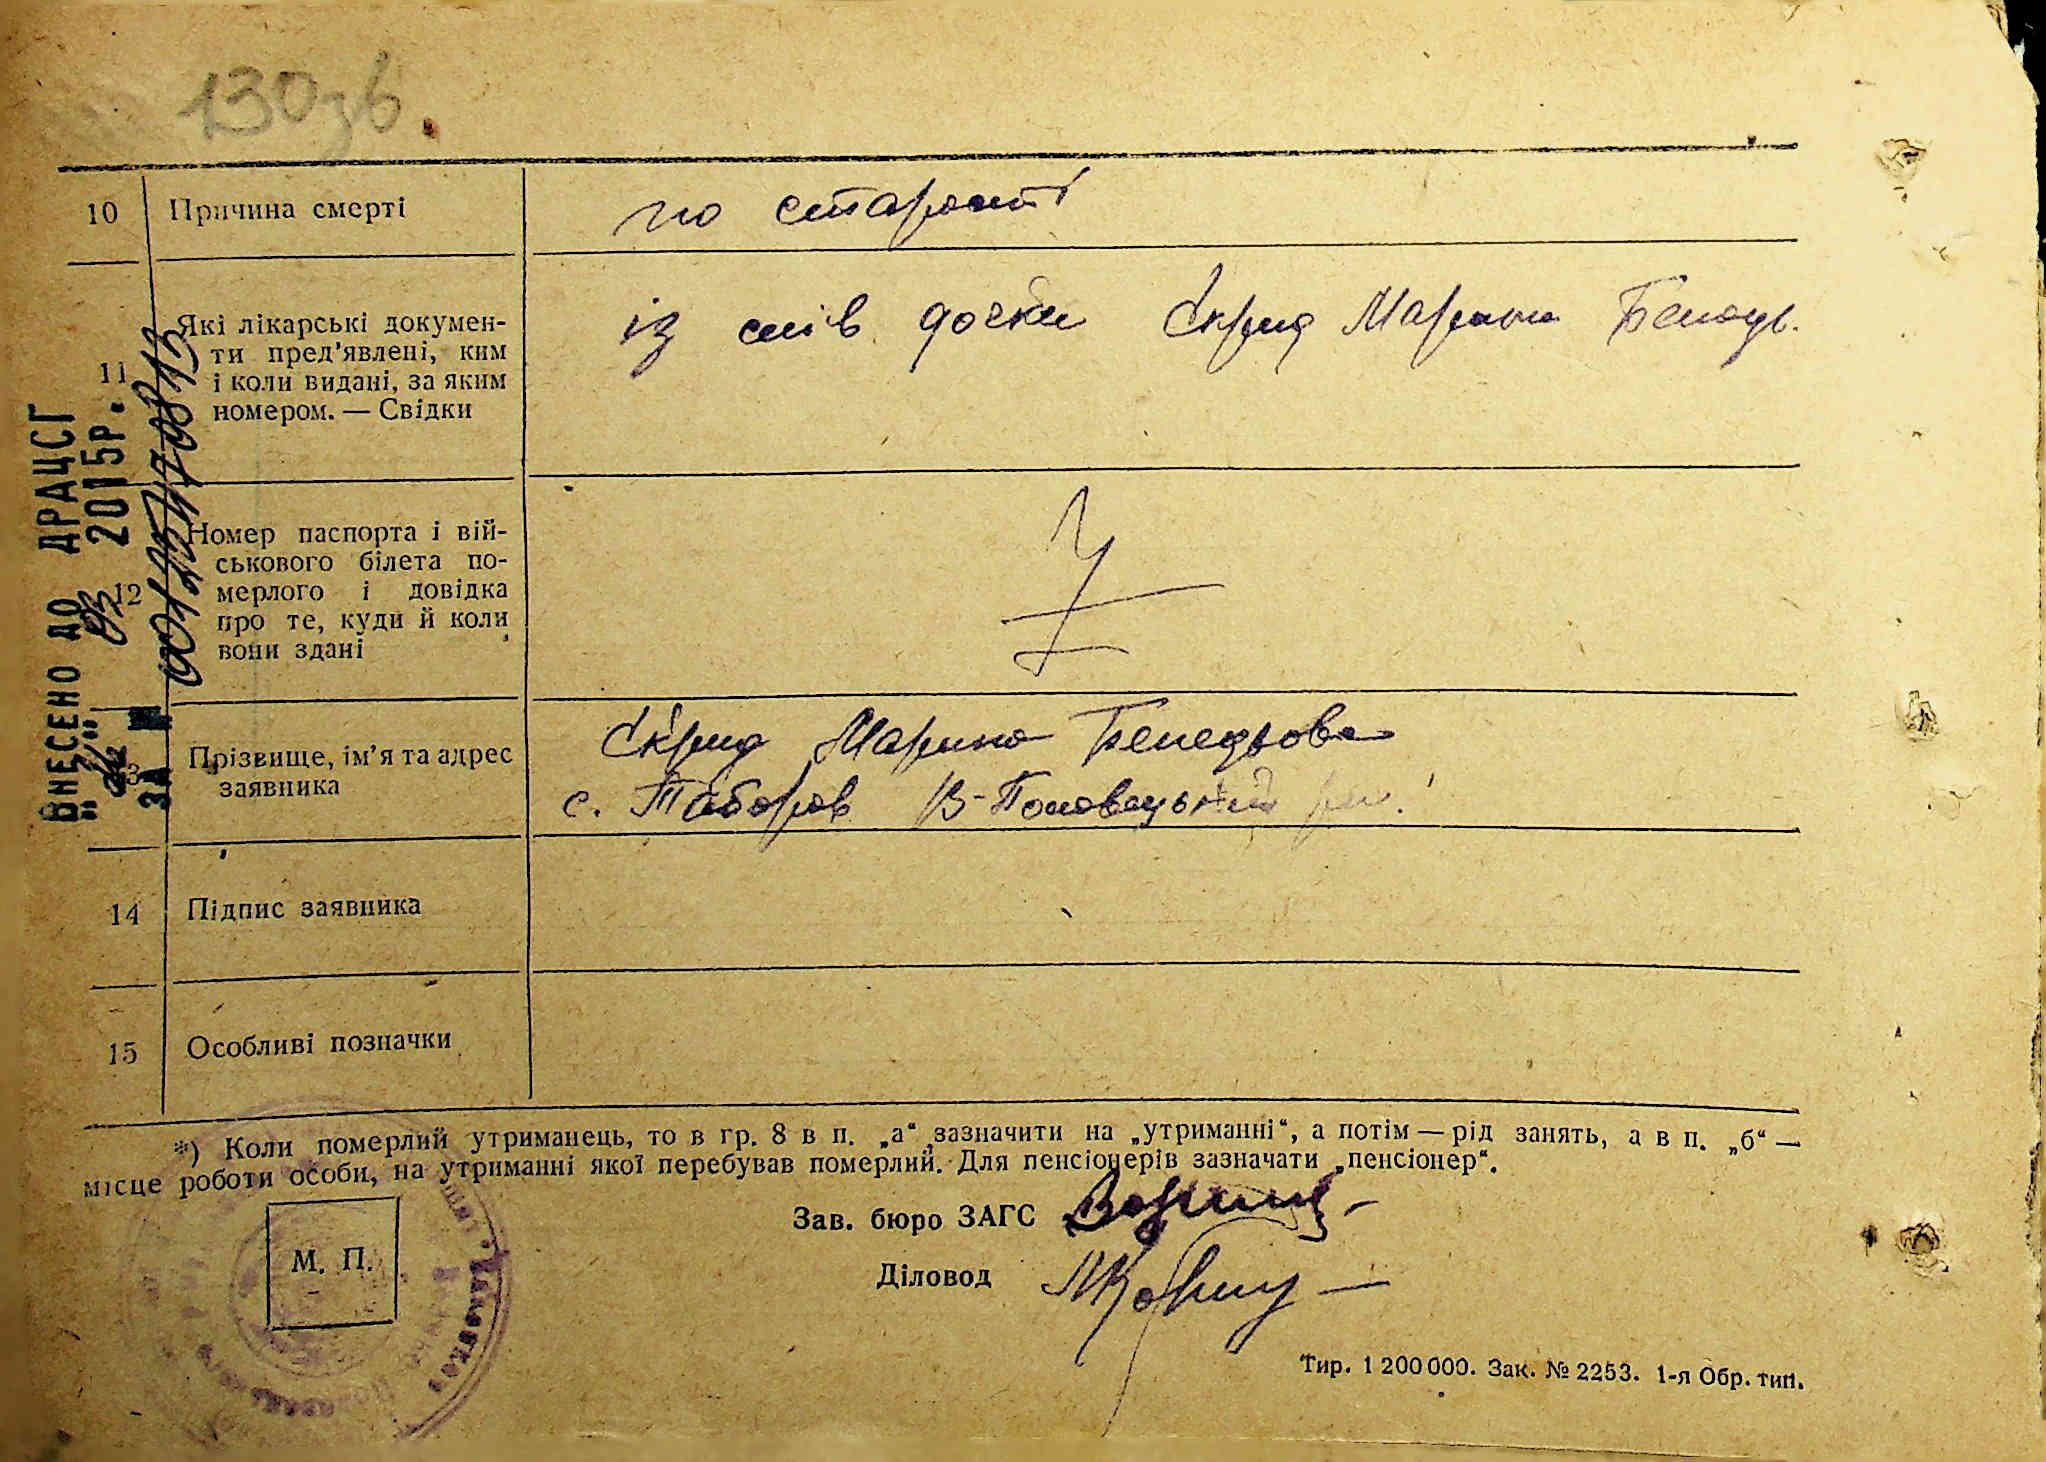 130зв.
10 Причина смерті по старості
11 Які лікарські докумен-
ти пред'явлені, ким
і коли видані, за яким
номером. — Свідки
із слів дочки Скрид Марини
12 Номер паспорта і вій-
ськового білета по-
мерлого і довідка
про те, куди й коли
вони здані
13 Прізвище, ім'я та адрес
заявника
Скрид Марина
с. Таборов В-Половецький
14 Підпис заявника
15 Особливі позначки
*) Коли померлий утриманець, то в гр. 8 в п. „а“ зазначити на „утриманні“, а потім — рід занять, а в п. „б“ —
місце роботи особи, на утриманні якої перебував померлий. Для пенсіонерів зазначати „пенсіонер“.
Зав. бюро ЗАГС
Діловод
М. П.
Тир. 1 200 000. Зак. № 2253. 1-я Обр. тип.
ВНЕСЕНО ДО ДРАЦСГ
03 2015Р.
ЗА №